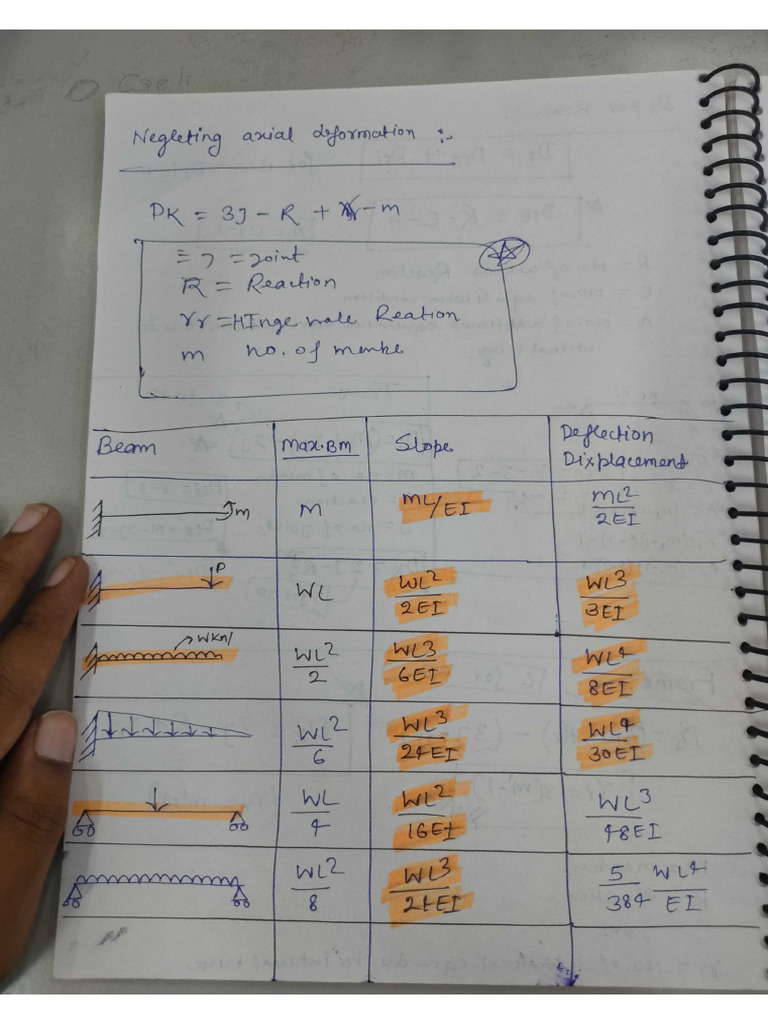 Negleting axial deformation :-
DK = 3J - R + rr - m
= J = Joint
R = Reaction
rr = HInge Reation
m no. of
Beam Max.BM Slope Deflection
Dixplacement
m M ML/EI ML2/2EI
P WL WL2/2EI WL3/3EI
WL2/2 WL3/6EI WL4/8EI
WL2/6 WL3/24EI WL4/30EI
WL/4 WL2/16EI WL3/48EI
WL2/8 WL3/24EI 5/384 WL4/EI